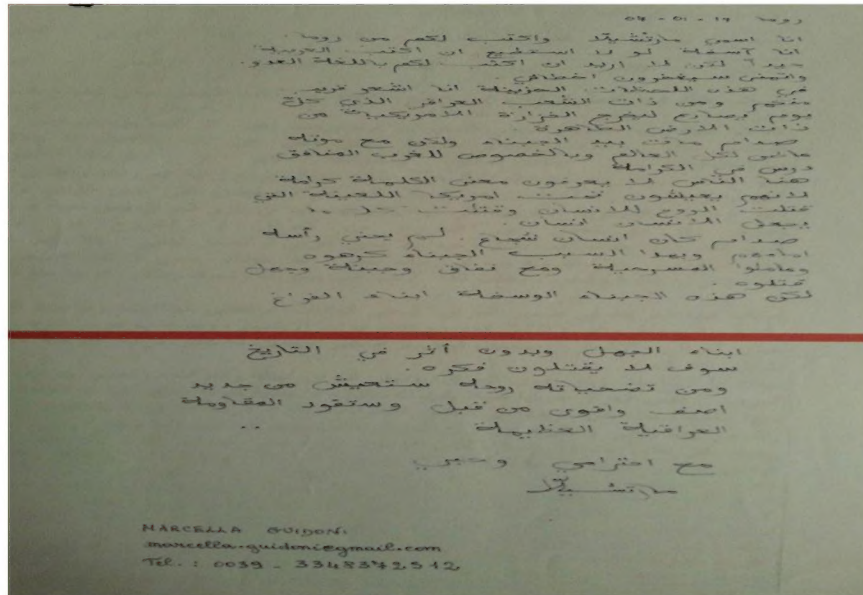 روما ١٧ - ٠١ - ٠٧
انا اسمي مارتشيلا واكتب لكم من روما.
انا آسفة لو لا استطيع ان اكتب العربية
جيداً لكن لا اريد ان اكتب لكم باللغة العدو.
واتمنى سيغفرون اخطائي.
في هذه اللحظات الحزينة انا اشعر قريب
منكم ومن ذات الشعب العراقي الذي كل
يوم يصارع ليخرج الغزاة الامريكية من
ذات الارض الطاهرة.
صدام مات بيد الجبناء ولكن مع موته
لكل العالم وبالخصوص للغرب المنافق
درس في الكرامة
هنا الناس لا يعرفون معنى الكلمة كرامة
لانهم يعيشون تحت امريكا اللعينة التي
قتلت الروح للانسان وقتلت كل ما
يجعل الانسان انسان.
صدام كان انسان شجاع. لم يحني رأسه
امامهم وبهذا السبب الجبناء كرهوه
وعاملوا المسرحية ومع نفاق وجبانة وجهل
قتلوه.
لكن هذه الجبناء الوسخة ابناء الفرغ
ابناء الجهل وبدون أثر في التاريخ
سوف لا يقتلون فكره.
ومن تضحياته روحه ستعيش من جديد
اصف واقوى من قبل وستقود المقاومة
العراقية العظيمة ..
مع احترامي وحبي
مارتشيلا
MARCELLA GUIDONI
marcella.guidoni@gmail.com
Tel.: 0039 - 3348372512